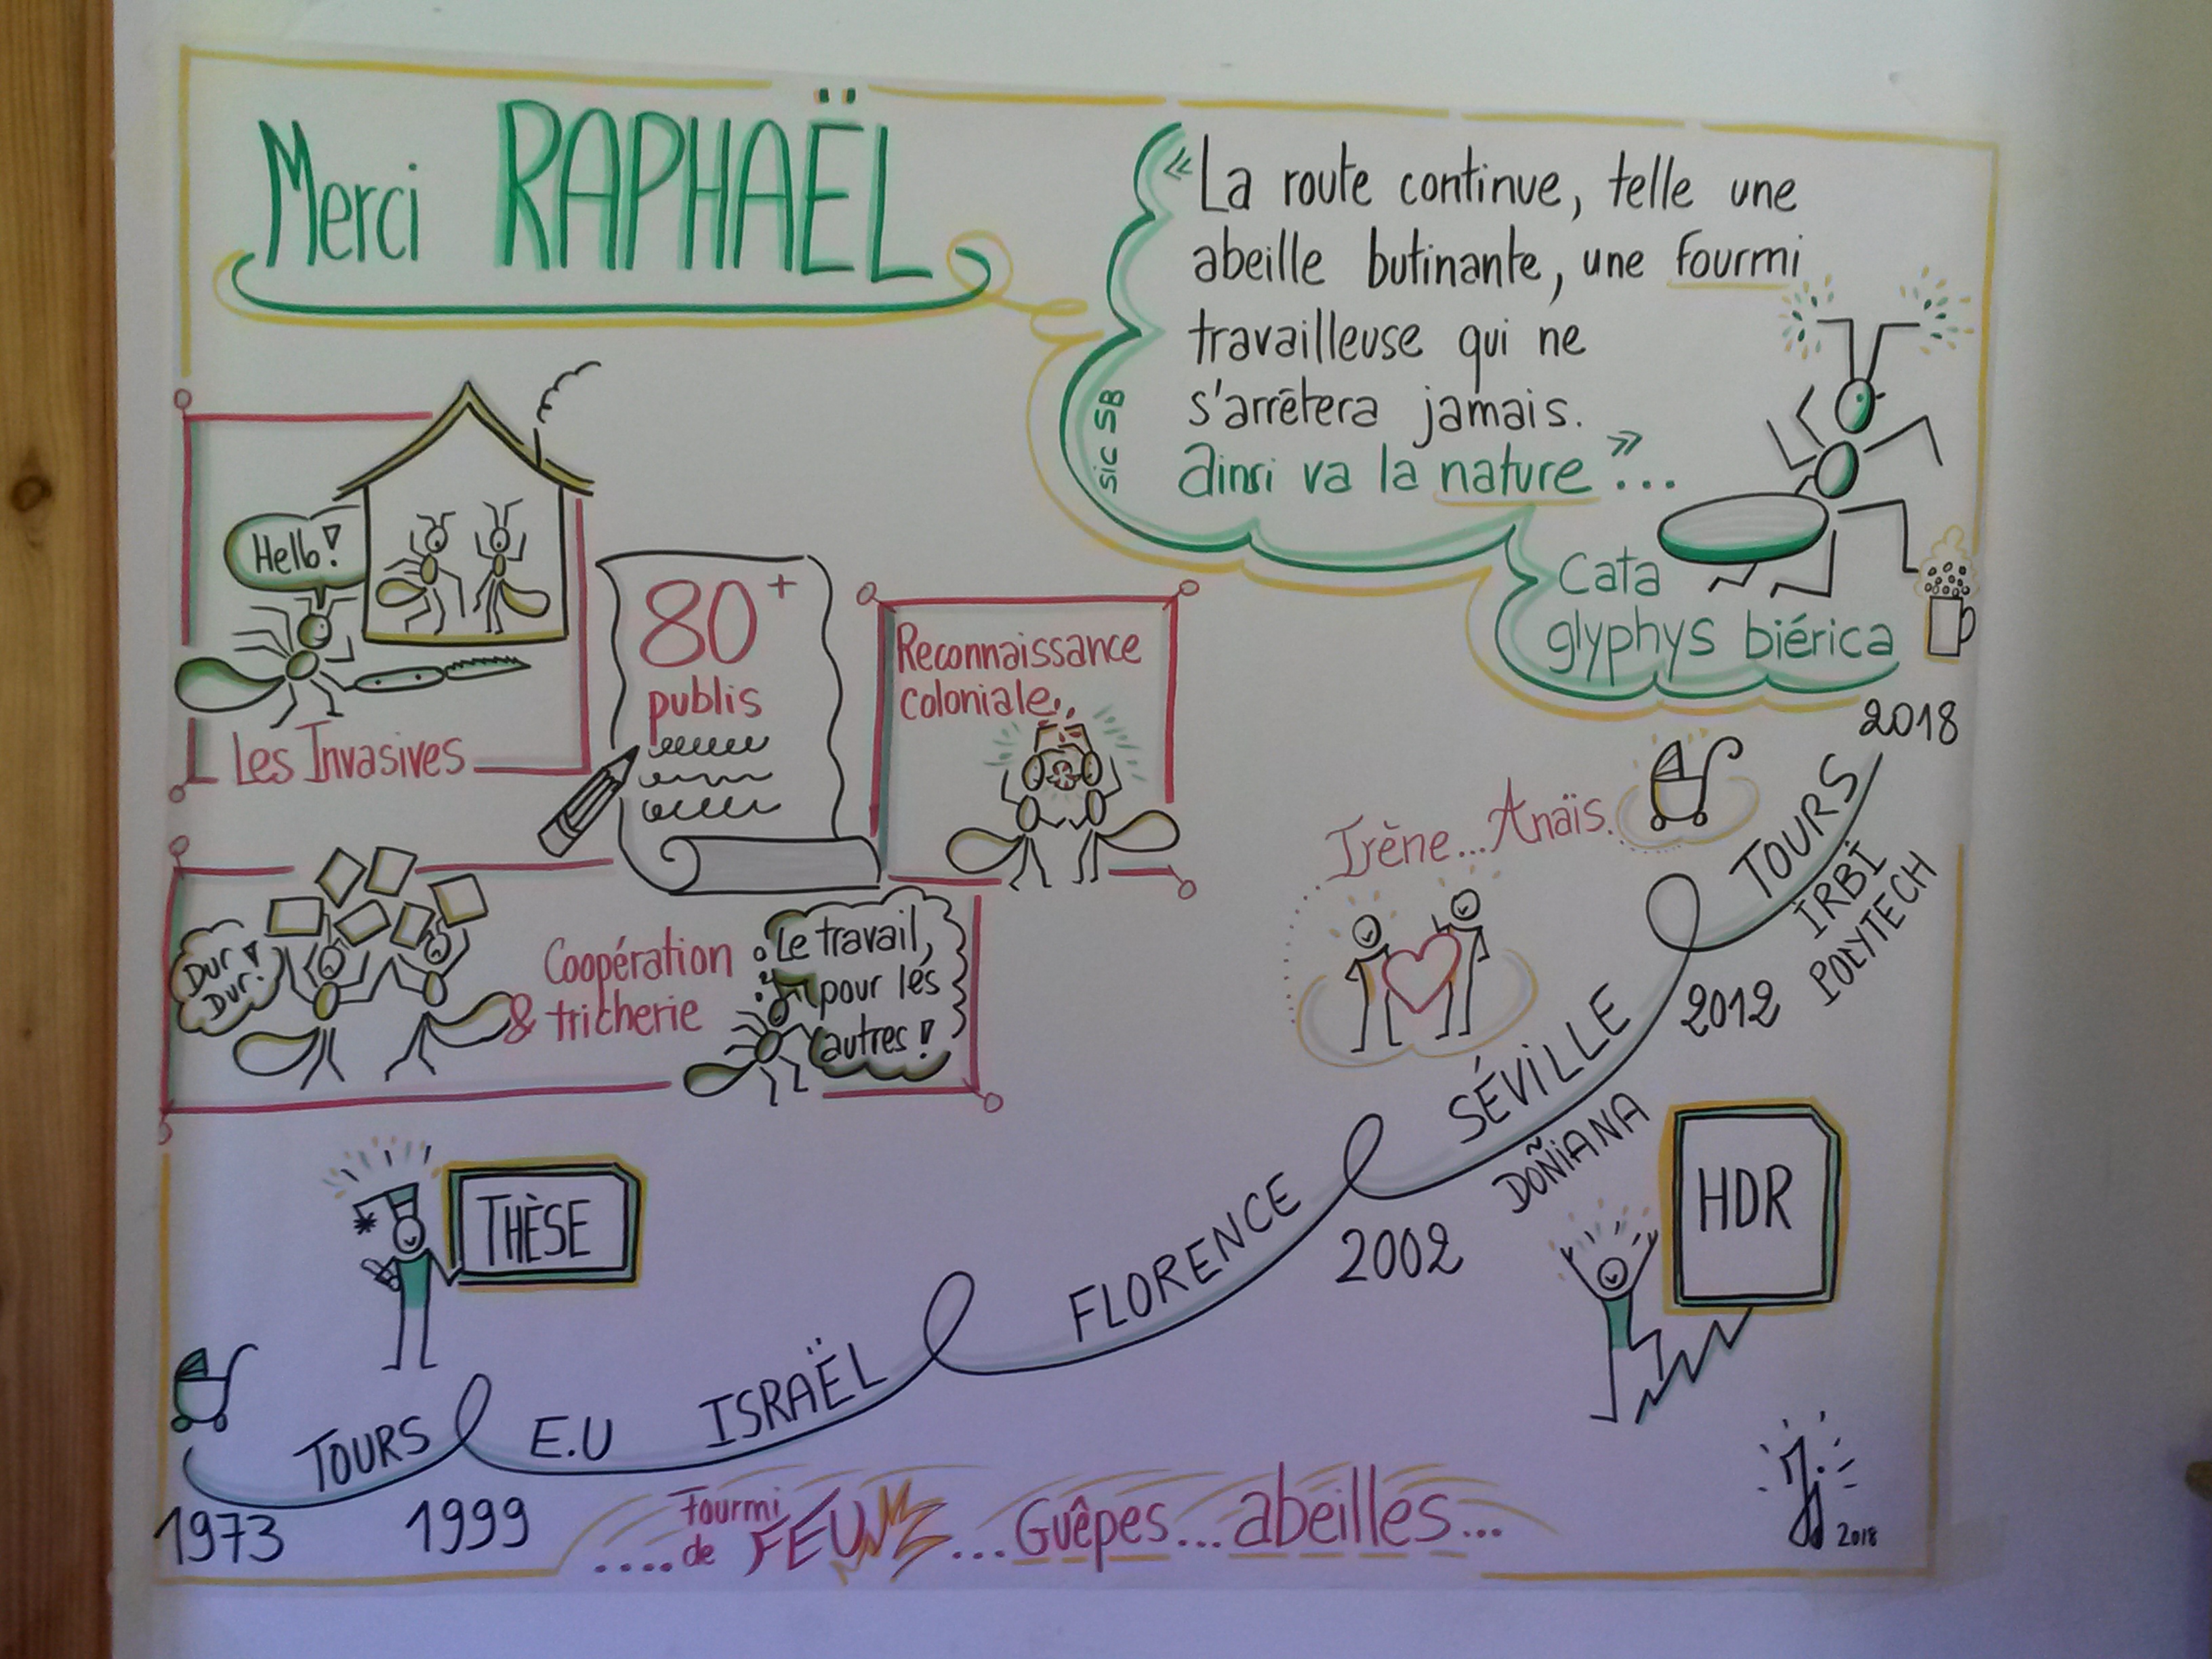 Merci RAPHAËL
« La route continue, telle une
abeille butinante, une fourmi
travailleuse qui ne
s'arrêtera jamais.
Ainsi va la nature »...
sic SB
Cata
glyphys biérica
Hello!
Les Invasives
80+
publis
Reconnaissance
coloniale
Dur!
Dur!
Coopération
& tricherie
Le travail,
pour les
autres!
THÈSE
Irène... Anaïs.
HDR
1973
TOURS
1999
E.U
ISRAËL
FLORENCE
2002
SÉVILLE
DOÑIANA
2012
TOURS
IRBI
POLYTECH
2018
.... Fourmi
de FEU... Guêpes... abeilles...
2018